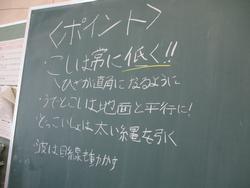 〈ポイント〉
・こしは常に低く!!
ひざが直角になるように
・うでとこしは地面と平行に!
・どっこいしょは太い縄を引く
・波は目線も動かす